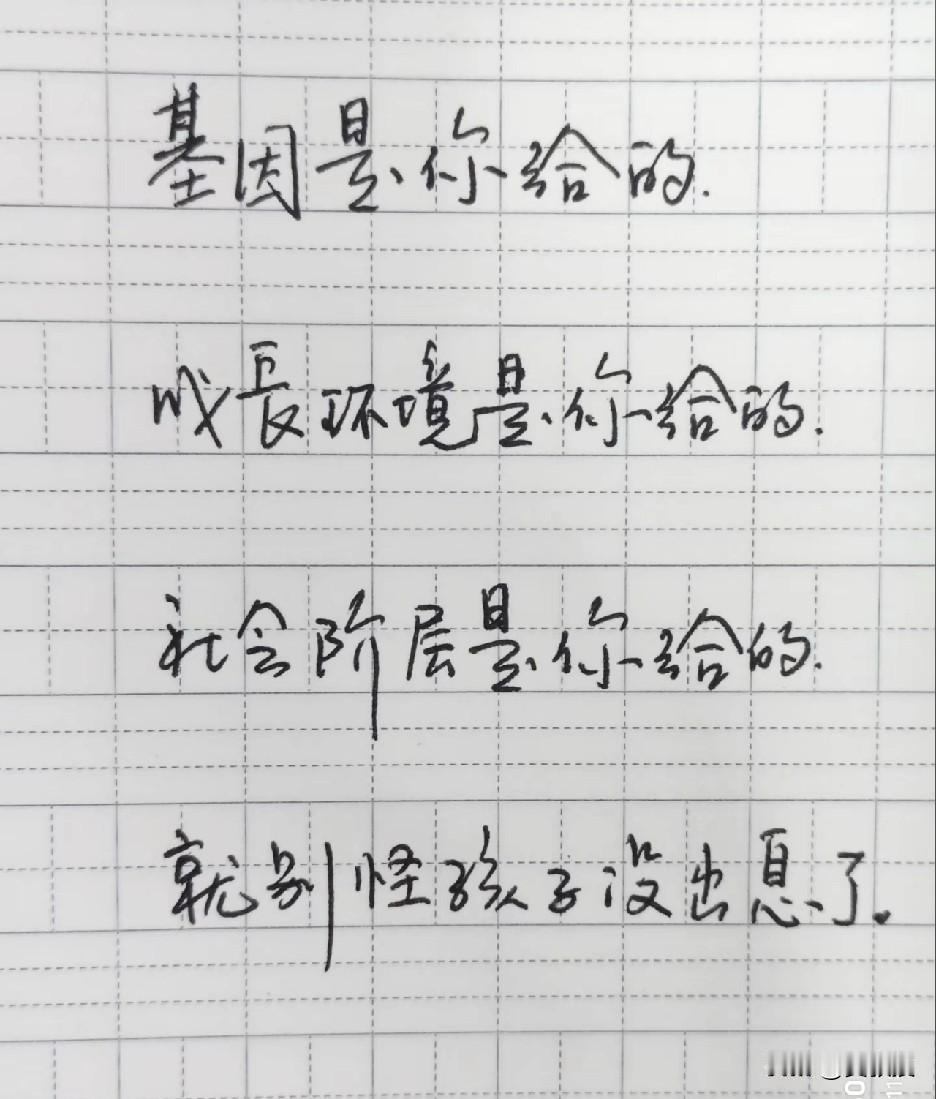 基因是你给的.
成長环境是你给的.
社会阶层是你给的.
就别怪孩子没出息了.